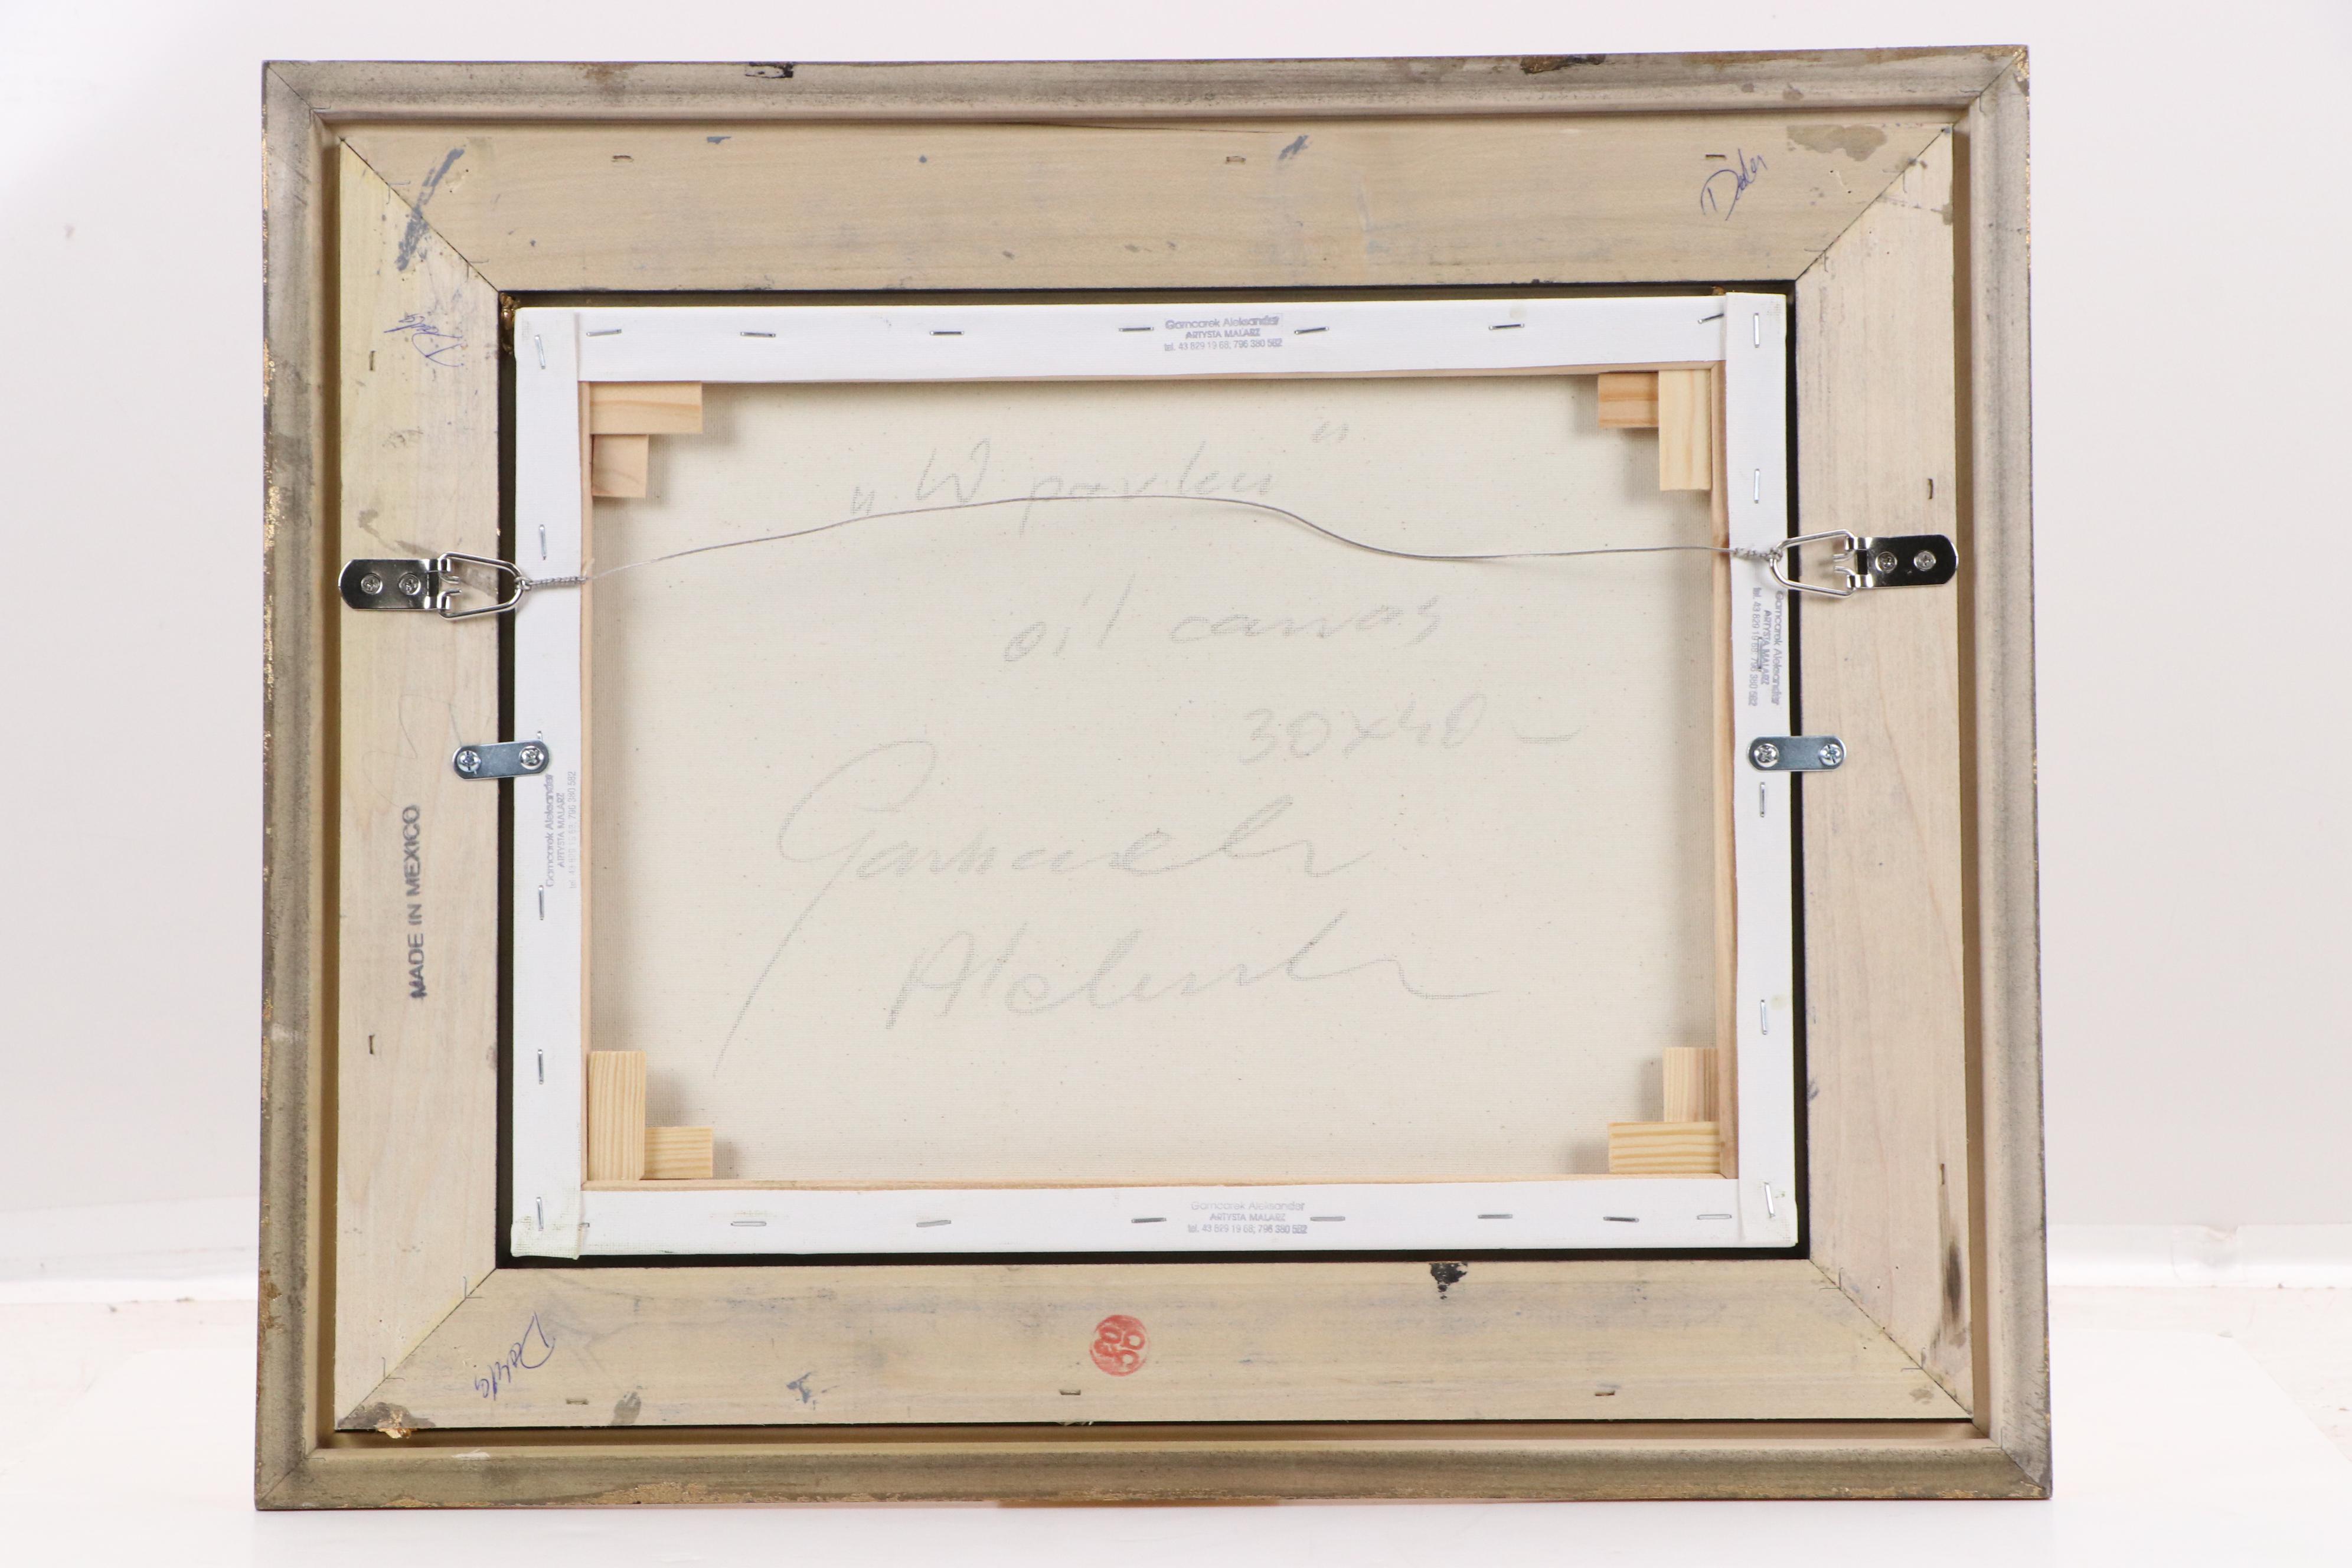 Garncarek Aleksander
ARTYSTA MALARZ
tel. 43 829 19 68; 796 380 582
„W parku"
oil canvas
30x40
Garncarek
Aleksander
Garncarek Aleksander
ARTYSTA MALARZ
tel. 43 829 19 68; 796 380 582
Garncarek Aleksander
ARTYSTA MALARZ
tel. 43 829 19 68; 796 380 582
MADE IN MEXICO
Garncarek Aleksander
ARTYSTA MALARZ
tel. 43 829 19 68; 796 380 582